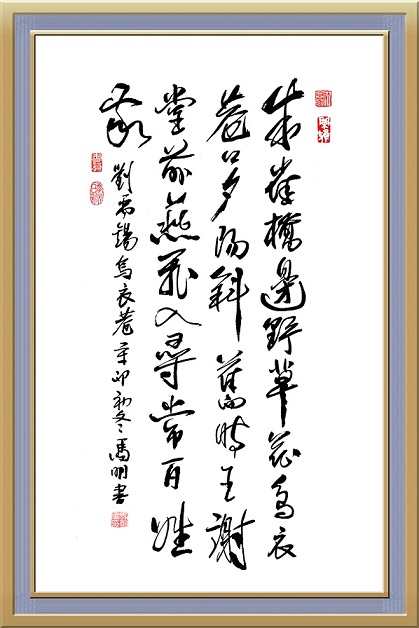 朱雀橋邊野草花烏衣
巷口夕陽斜舊時王謝
堂前燕飛入尋常百姓
家
劉禹錫烏衣巷辛卯初冬馬明書